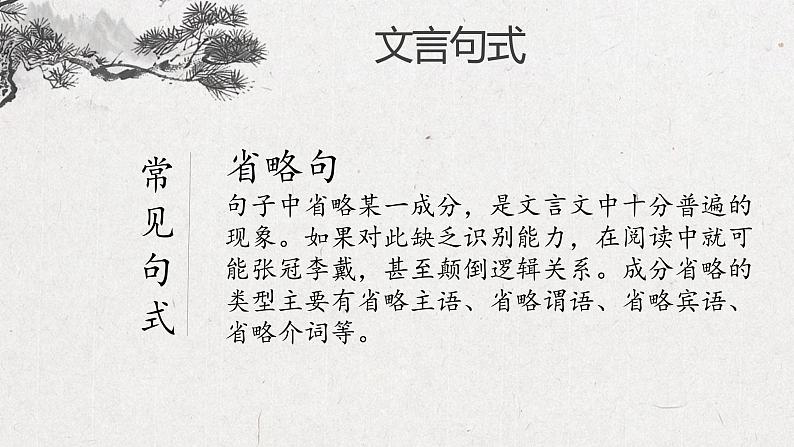 文言句式
常见句式
省略句
句子中省略某一成分，是文言文中十分普遍的
现象。如果对此缺乏识别能力，在阅读中就可
能张冠李戴，甚至颠倒逻辑关系。成分省略的
类型主要有省略主语、省略谓语、省略宾语、
省略介词等。